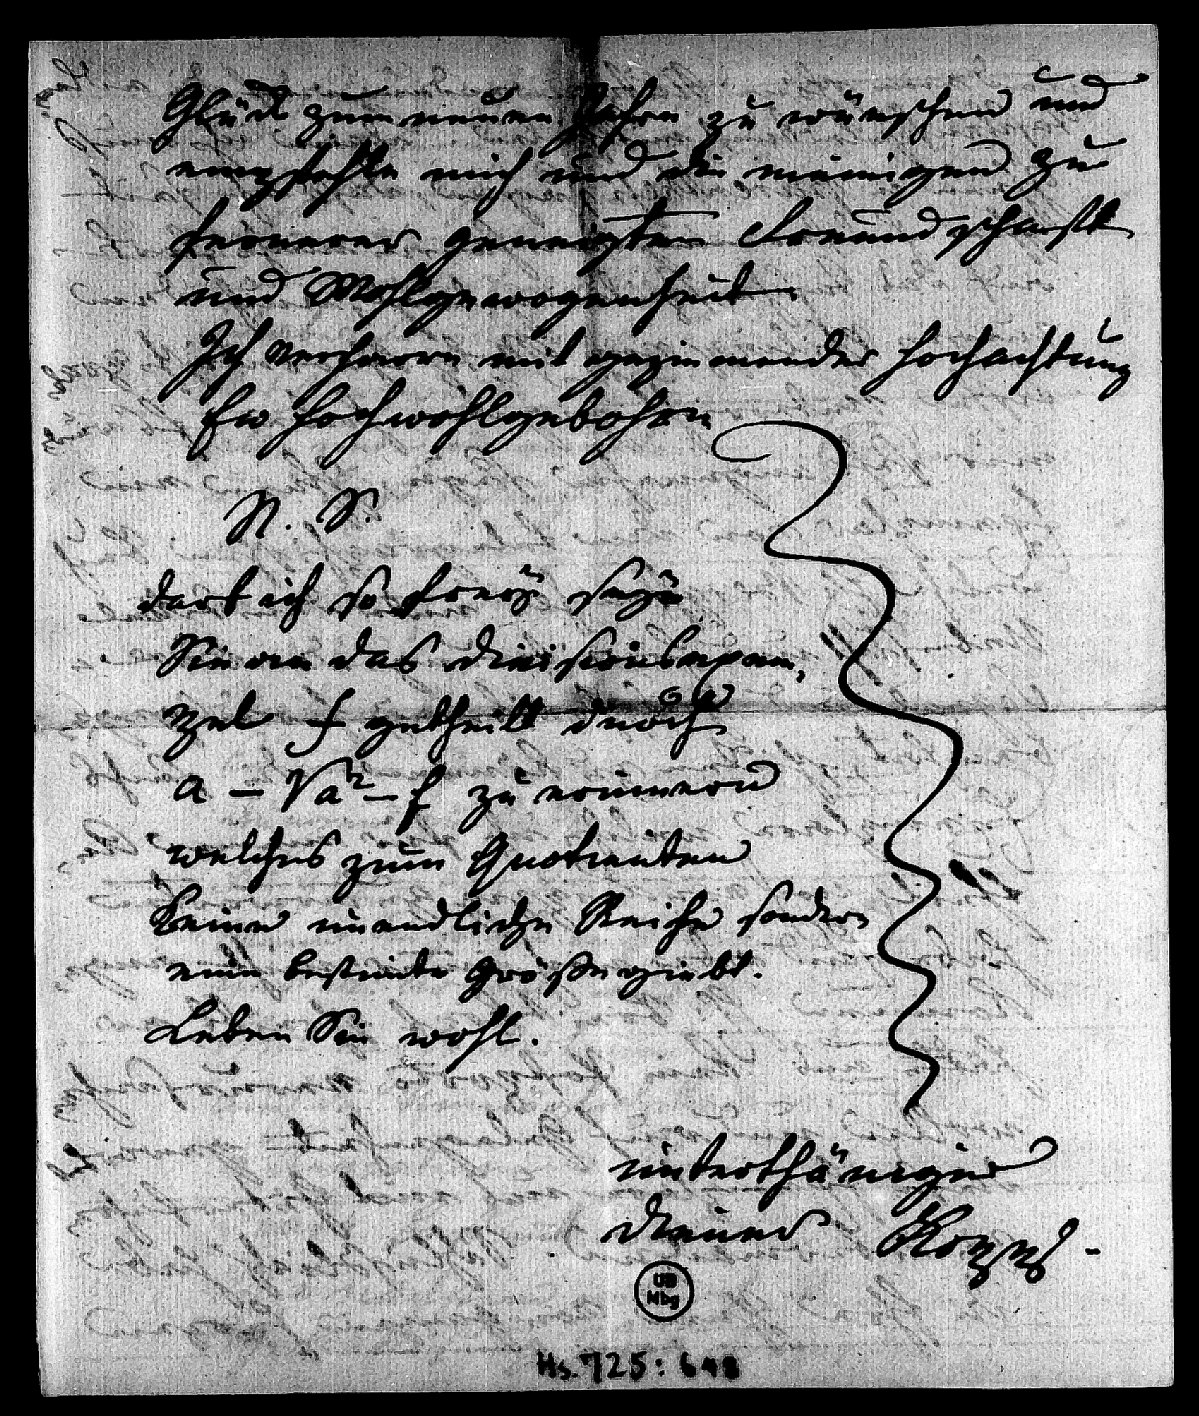 Glück zum neuen Jahre zu wünschen und
empfehle mich und die meinigen zu
fernerer geneigten Freundschafft
und Wohlgewogenheit.
Ich verharre mit geziemender Hochachtung
Ew Hochwohlgebohrn
N. S.
darf ich so freÿ seÿn
Sie an das divisions
zel f getheilt durch
a – √a² – f zu erinnern
welches zum Quotienten
keine unendliche Reihe sondern
eine bestimte Größe giebt.
Leben Sie wohl.
unterthäniger
diener
UB
Mbg
Hs. 725: 648